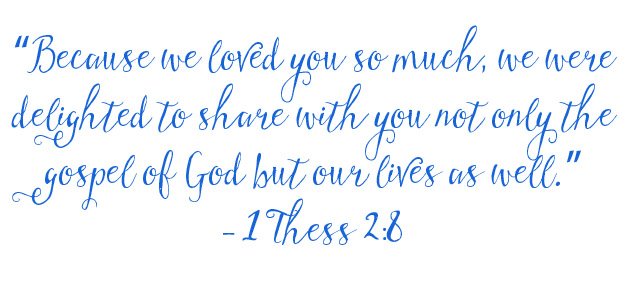 “Because we loved you so much, we were
delighted to share with you not only the
gospel of God but our lives as well.”
- 1 Thess 2:8